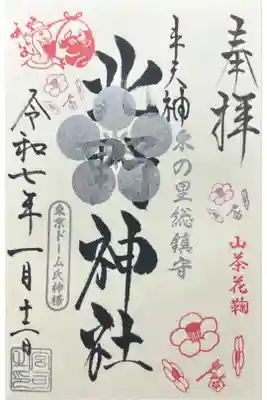 奉拝
山茶花鞠
牛天神
の里総鎮守
北野神社
東京ドーム氏神様
令和七年一月十二日